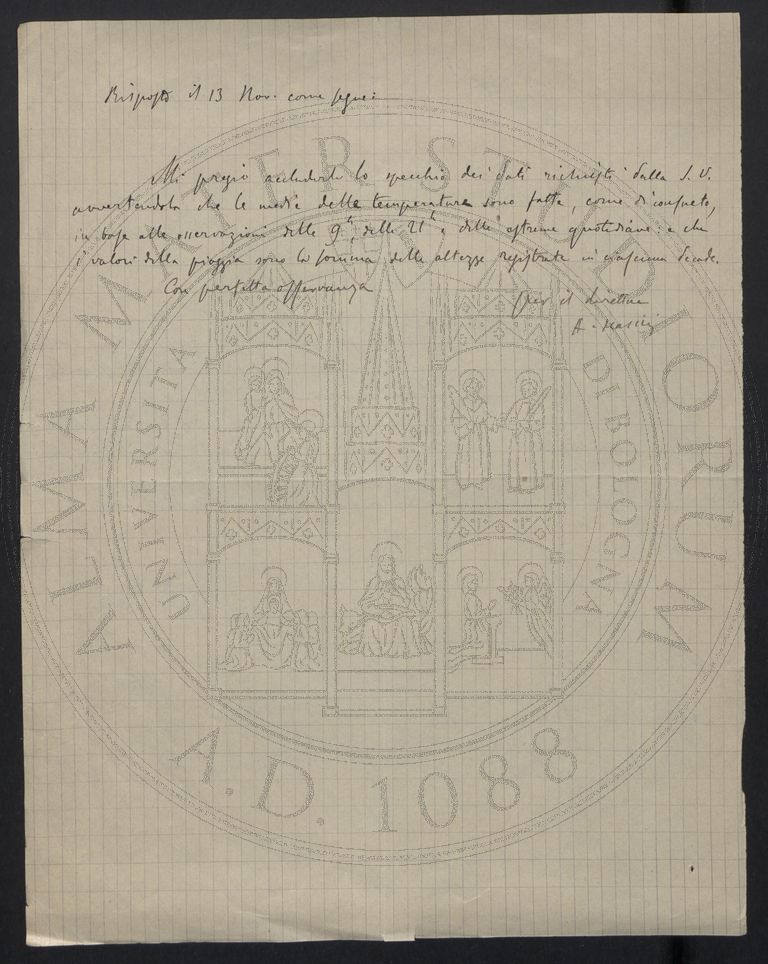 Risposto il 13 Nov. come segue:
Mi pregio accluderle lo specchio dei dati richiesti dalla S. V.
avvertendola che le medie delle temperature sono fatte, come di consueto,
in base alle osservazioni delle 9h, delle 21h e delle estreme quotidiane: e che
i valori della pioggia sono la somma delle altezze registrate in ciascuna decade.
Con perfetta osservanza
per il direttore
A.
ALMA MATER STUDIORUM
UNIVERSITA DI BOLOGNA
A.D. 1088